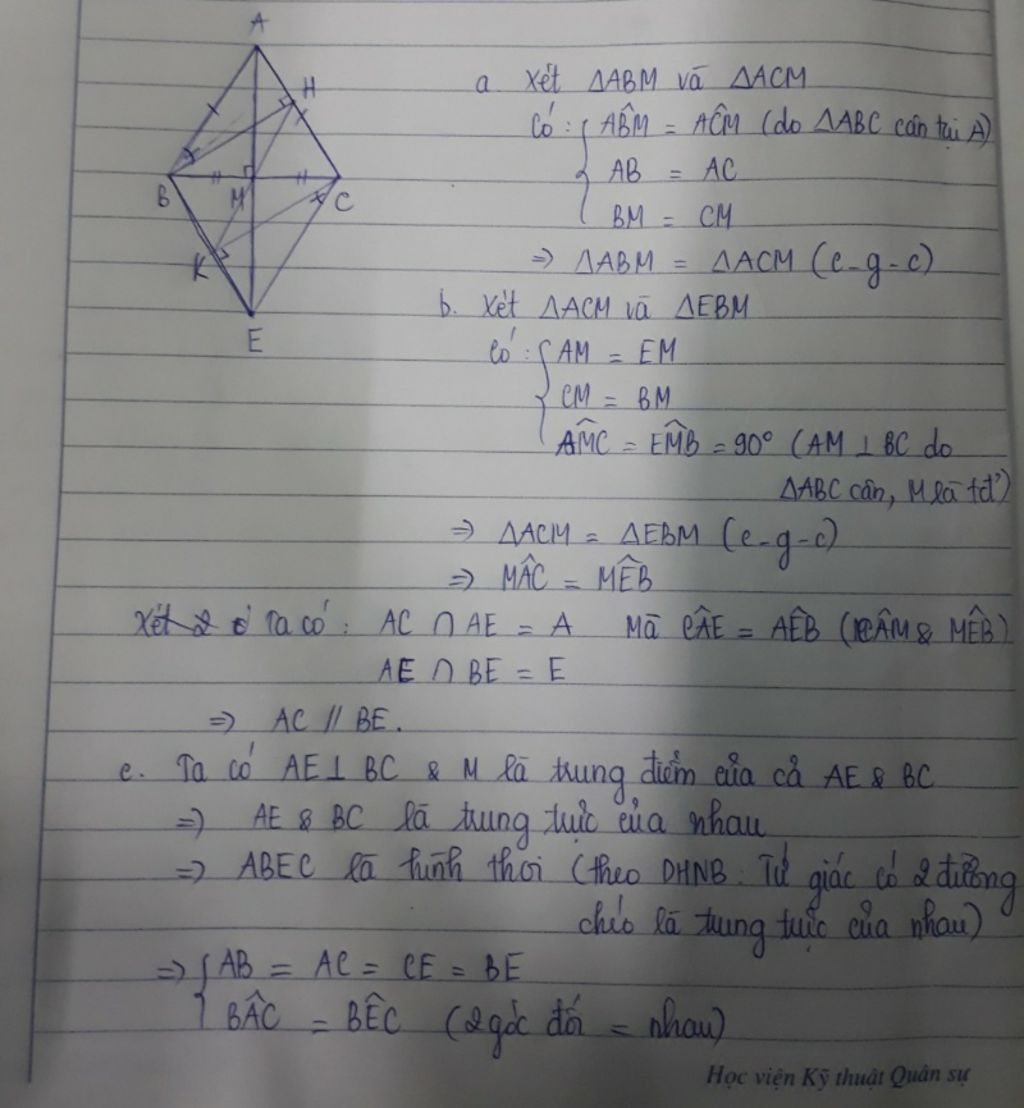 A
H
B
M
C
K
E
a. Xét ΔABM và ΔACM
Có : { AB̂M = AĈM (do ΔABC cân tại A)
AB = AC
BM = CM
=> ΔABM = ΔACM (c-g-c)
b. Xét ΔACM và ΔEBM
Có : { AM = EM
CM = BM
AM̂C = EM̂B = 90° (AM ⊥ BC do
ΔABC cân, M là tđ')
=> ΔACM = ΔEBM (c-g-c)
=> MÂC = MÊB
Ta có : AC ∩ AE = A Mà CÂE = AÊB (CÂM & MÊB)
AE ∩ BE = E
=> AC // BE.
c. Ta có AE ⊥ BC & M là trung điểm của cả AE & BC
=> AE & BC là trung trực của nhau
=> ABEC là hình thoi (theo DHNB : Tứ giác có 2 đường
chéo là trung trực của nhau)
=> { AB = AC = CE = BE
BÂC = BÊC (2 góc đối = nhau)
Học viện Kỹ thuật Quân sự